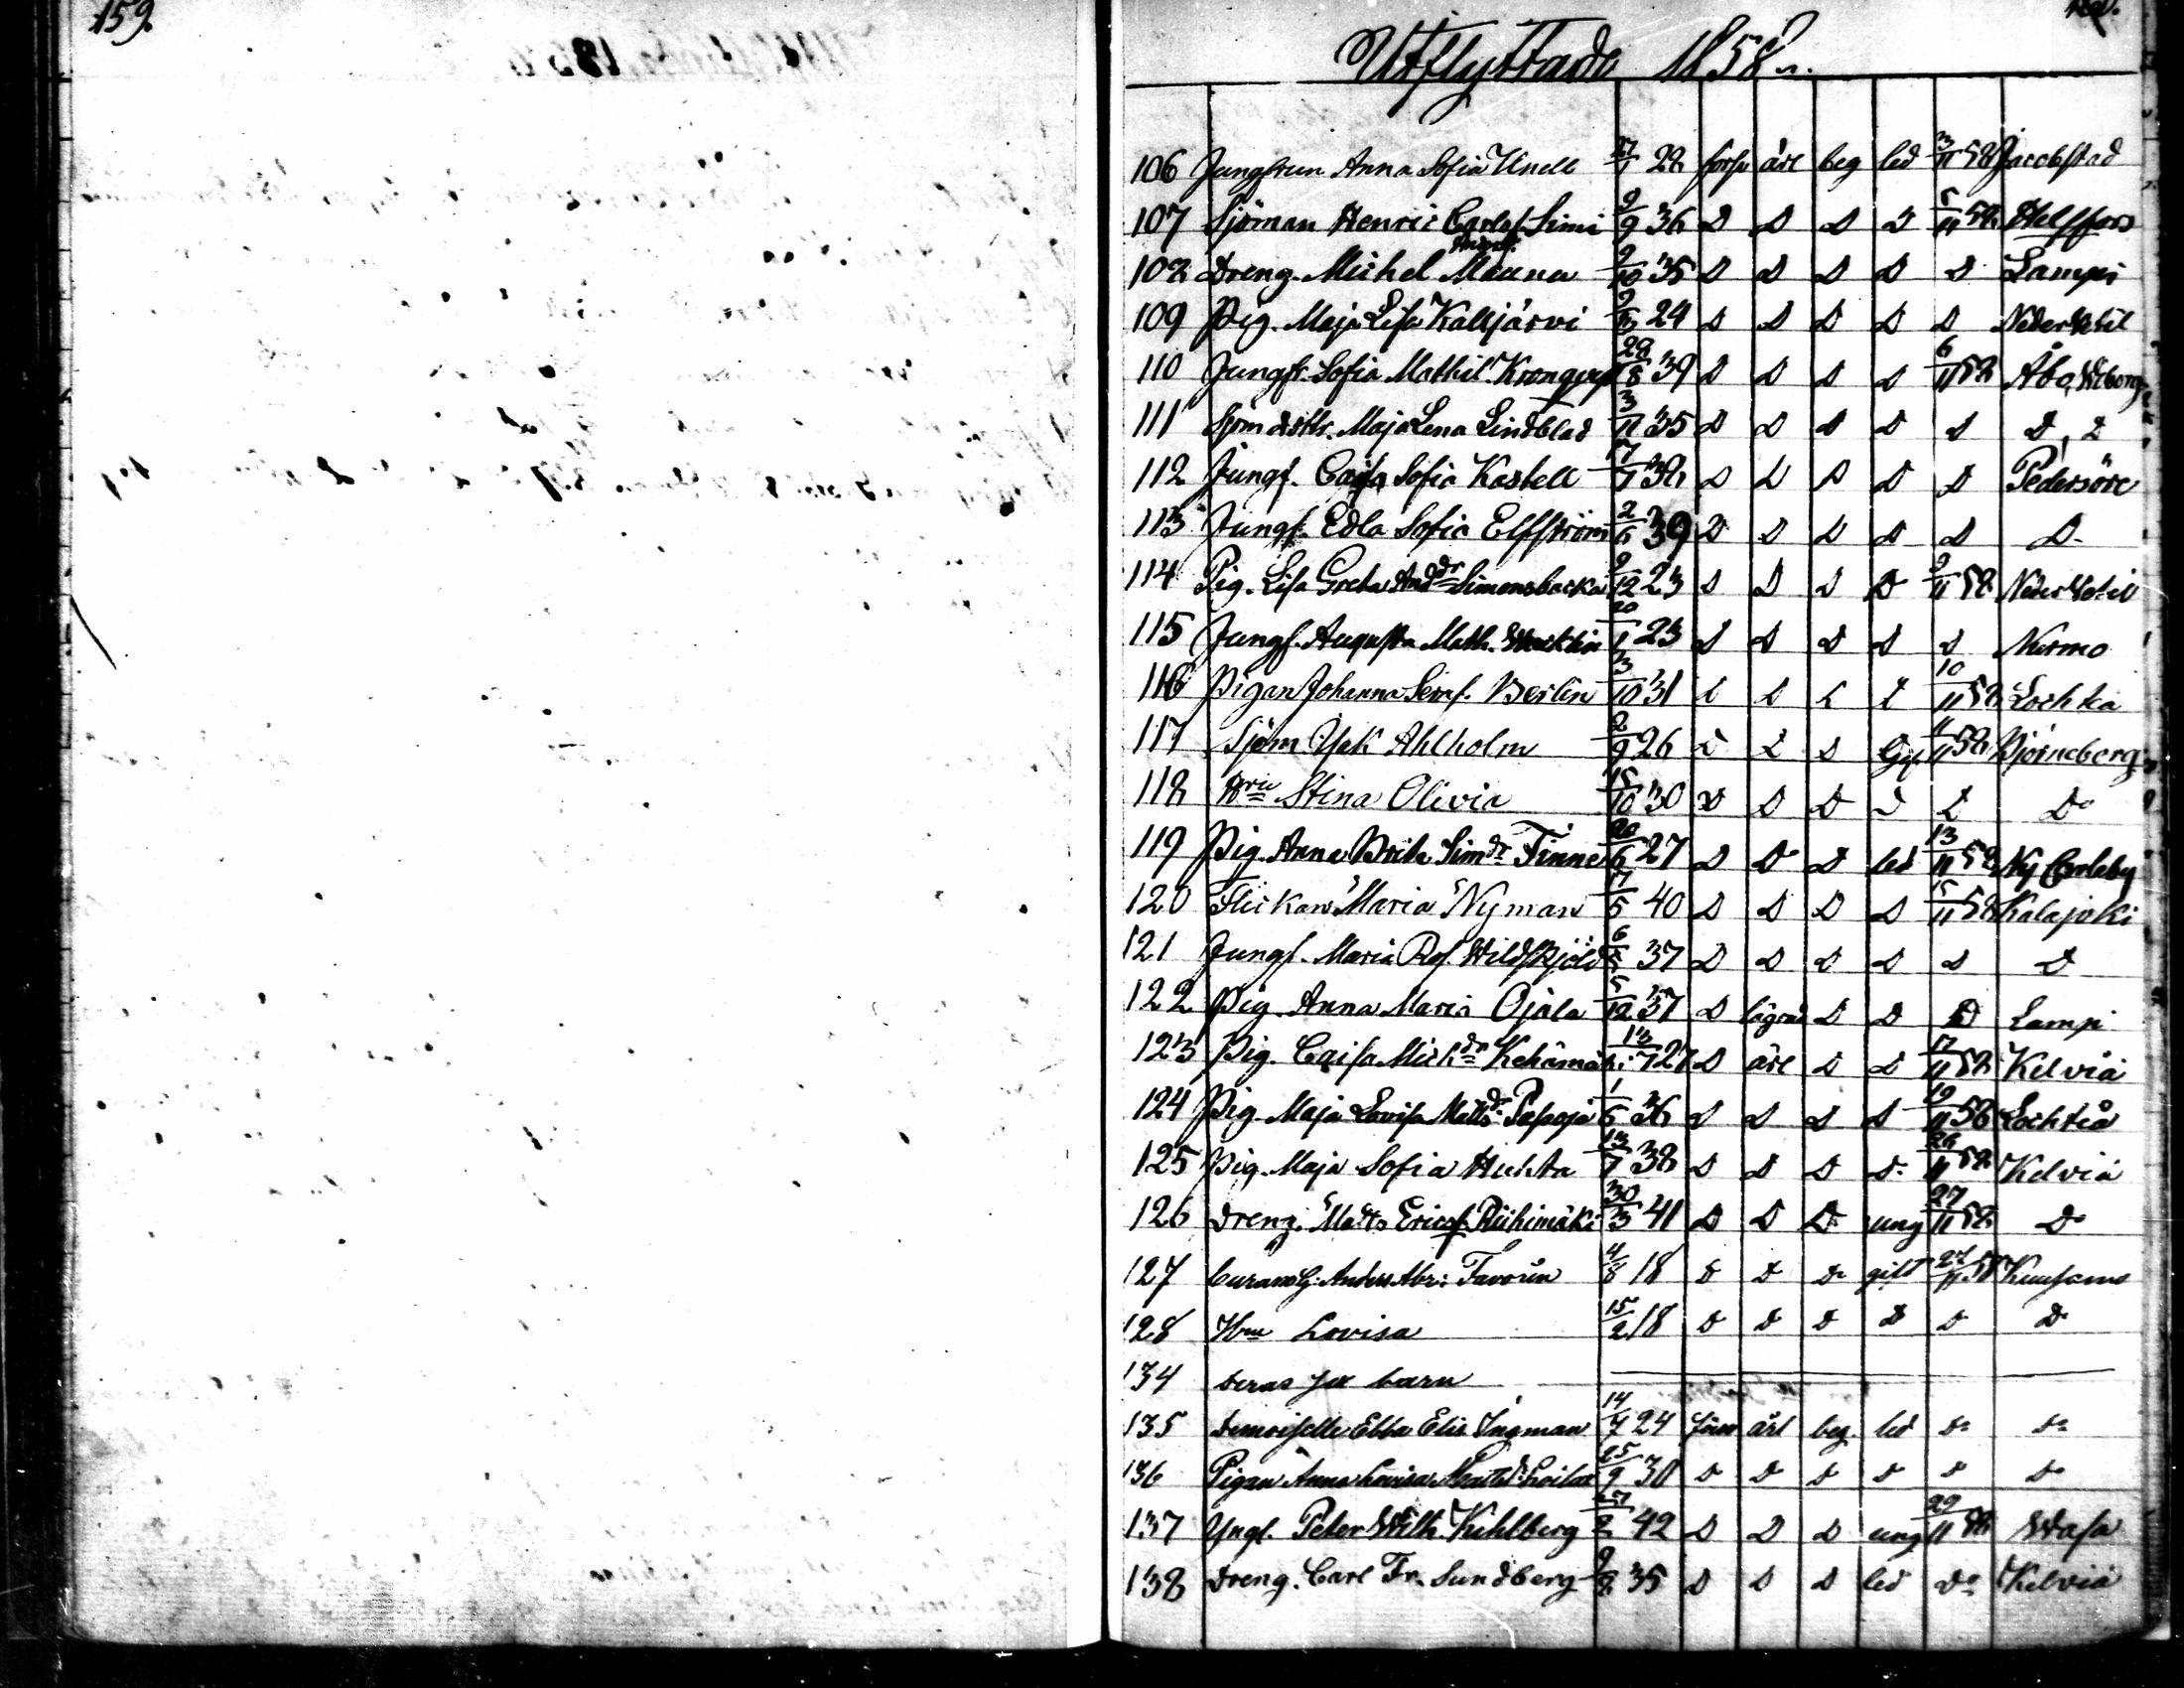 159.
Utflyttade 1858.
106 Jungfrun Anna Sofia Unell 27/1 28 försv ärl beg led 3/11 58 Jacobstad
107 Sjöman Henric Carlss. Simi 9/9 36 D D D D 5/11 58 Helsffors
108 Dreng. Michel Mauna 9/10 35 D D D D D Lampi
109 Pig. Maja Lisa Kalljärvi 24 D D D D D Nedervetil
110 Jungfr. Sofia Mathil. 28/8 39 D D D D 6/11 58 Åbo, Wiborg
111 Sjömdottr. Maja Lena Lindblad 3/11 35 D D D D D D, D
112 Jungf. Caisa Sofia Kastell 17/7 38 D D D D D Pedersöre
113 Jungf. Edla Sofia Elfström 2/6 39 D D D D D D
114 Pig. Lisa Greta Anddr Simonsbacka 9/12 23 D D D D 9/11 58 Nedervetil
115 Jungf. Augusta Math. 20/1 23 D D D D D Nurmo
116 Pigan Johanna Seraf. Berlin 3/10 31 D D D D 10/11 58 Lochtea
117 Sjöm. Jak Ahlholm 2/9 26 D D D Gif. 11/11 58 Björneborg
118 Hru Stina Olivia 15/10 30 D D D D D Do
119 Pig. Anna Brita Simdr Finne 20/6 27 D D D led 13/11 58 Ny Carleby
120 Flickan Maria Nyman 17/5 40 D D D D 15/11 58 Kalajoki
121 Jungf. Maria Ros. Wildskjöld 37 D D D D D D
122 Pig. Anna Maria Ojala 5/12 37 D lägrad D D D Lampi
123 Pig. Caisa Michdr Kehämäki 13/7 27 D ärl D D 17/11 58 Kelviå
124 Pig. Maja Lovisa Mattsdr Pepoja 1/6 36 D D D D 19/11 58 Lochteå
125 Pig. Maja Sofia Huhta 13/7 38 D D D D 26/11 58 Kelviå
126 Dreng. Matts Ericss. Riihimäki 30/3 41 D D D ung 27/11 58 Do
127 Anders Abr: Favorin 4/8 18 D D D gift 27/11 58 Kuusamo
128 Hru Lovisa 15/2 18 D D D D D D
134 Deras sex barn
135 Demoiselle Ebba Elis. Ingman 14/7 24 förs ärl beg. led Do Do
136 Pigan Anna Lovisa 25/9 30 D D D D D Do
137 Yngl. Peter Wilh. Kihlberg 42 D D D ung 29/11 58 Wasa
138 Dreng. Carl Fr. Sundberg 9/8 35 D D D led Do Kelviå